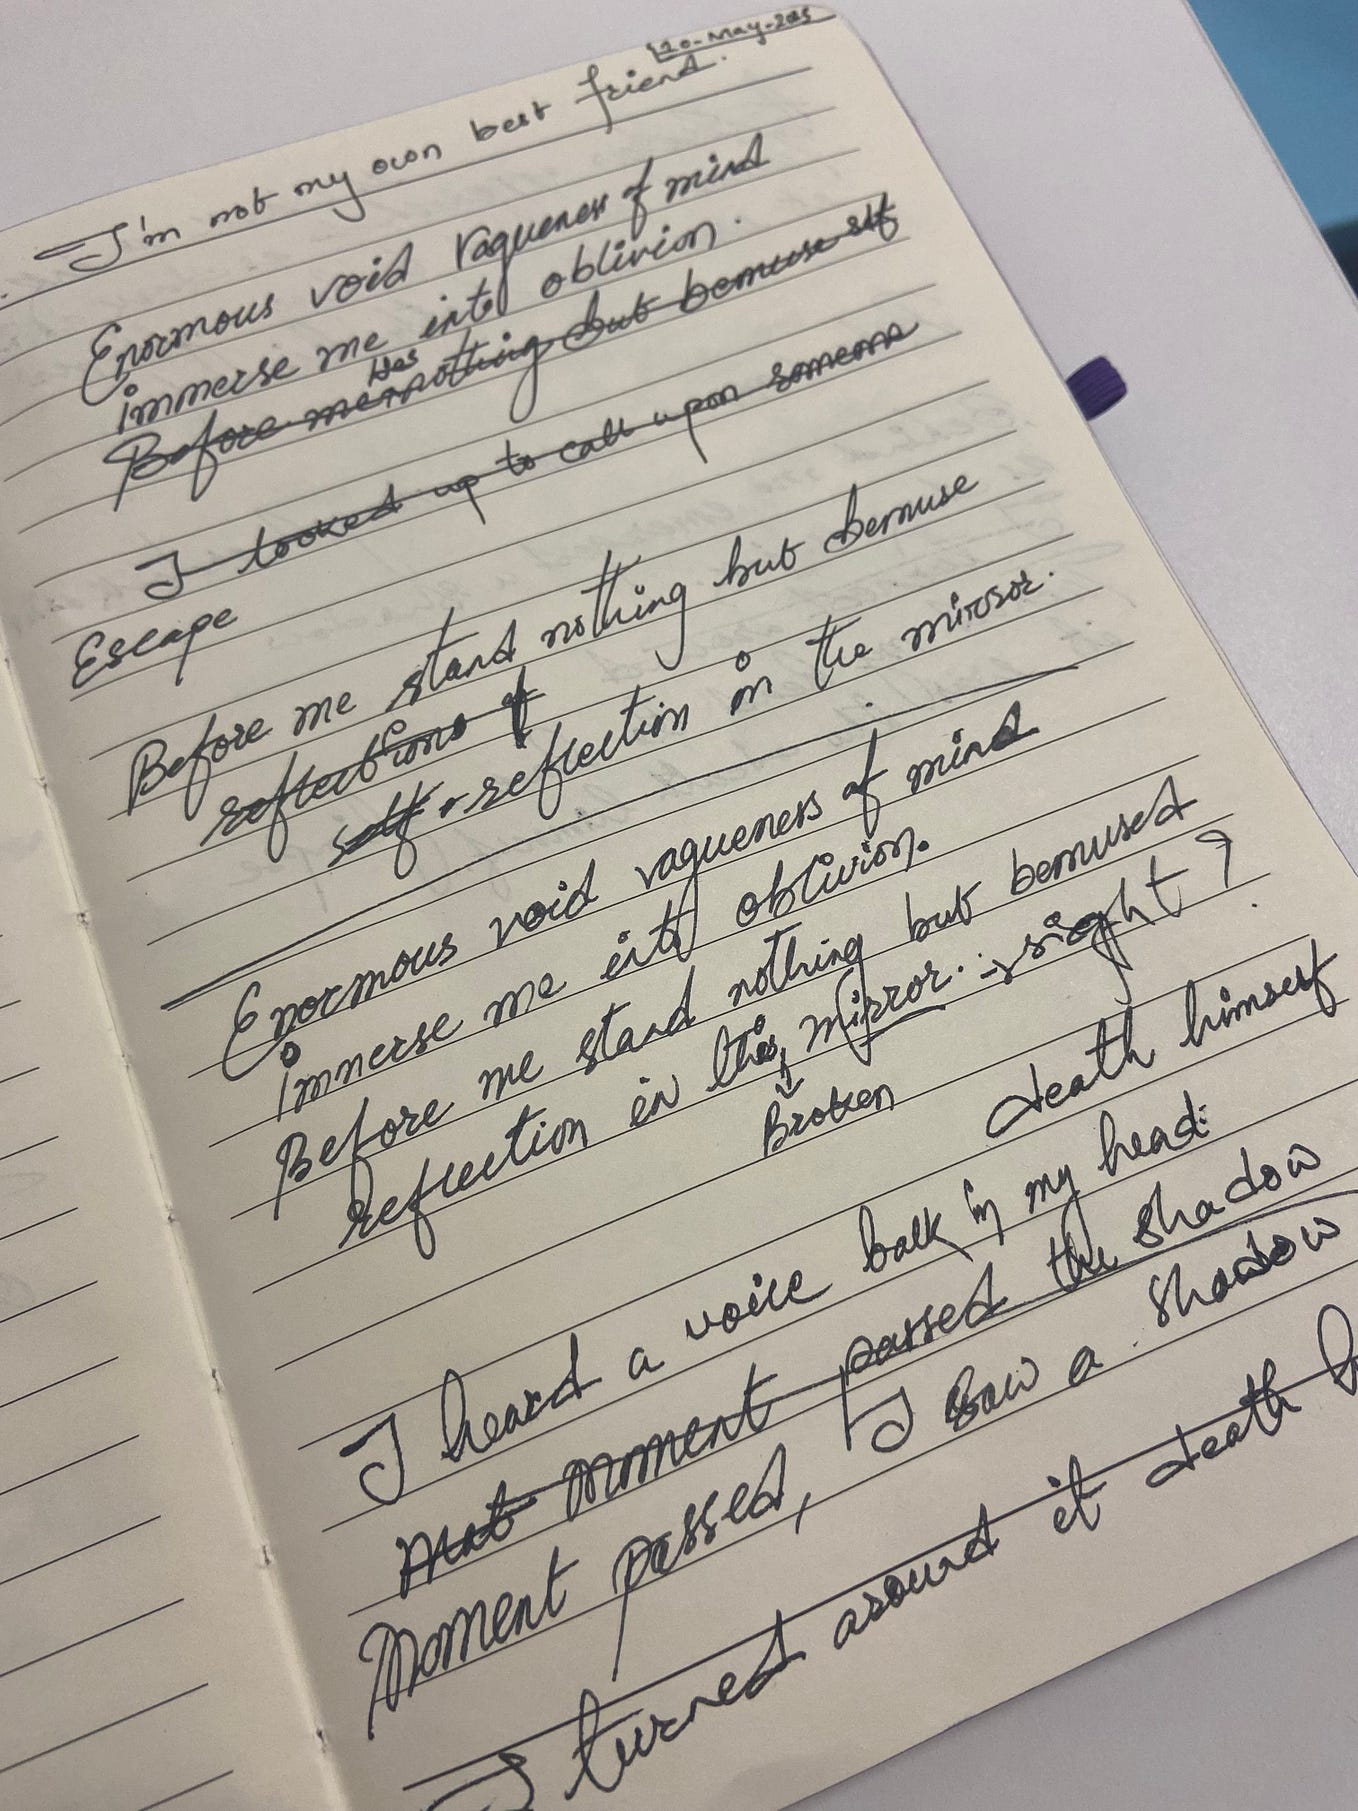 20-May-2025
I'm not my own best friend.
Enormous void vagueness of mind
immerse me into oblivion.
Before me nothing but bemuse self
I looked up to call upon someone
Escape
Before me stand nothing but bemuse
reflections of
self - reflection in the mirror.
Enormous void vagueness of mind
immerse me into oblivion.
Before me stand nothing but bemused
reflection in this mirror. → right?
Broken
death himself
I heard a voice balk in my head.
Moment passed the shadow
Moment passed, I saw a shadow
I turned around it death